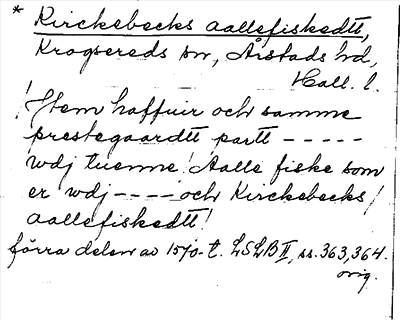 * Kirckebecks aallefiskedtt,
Krogsereds sn, Årstads hd,
Hall. l.
! Item haffuir och samme
prestegaardtt partt - - - - -
wdj tuenne! Aalle fiske som
er wdj - - - - och Kirckebecks!
aallefiskedtt!
förra delen av 1570-t. LSLB II, ss. 363, 364.
orig.